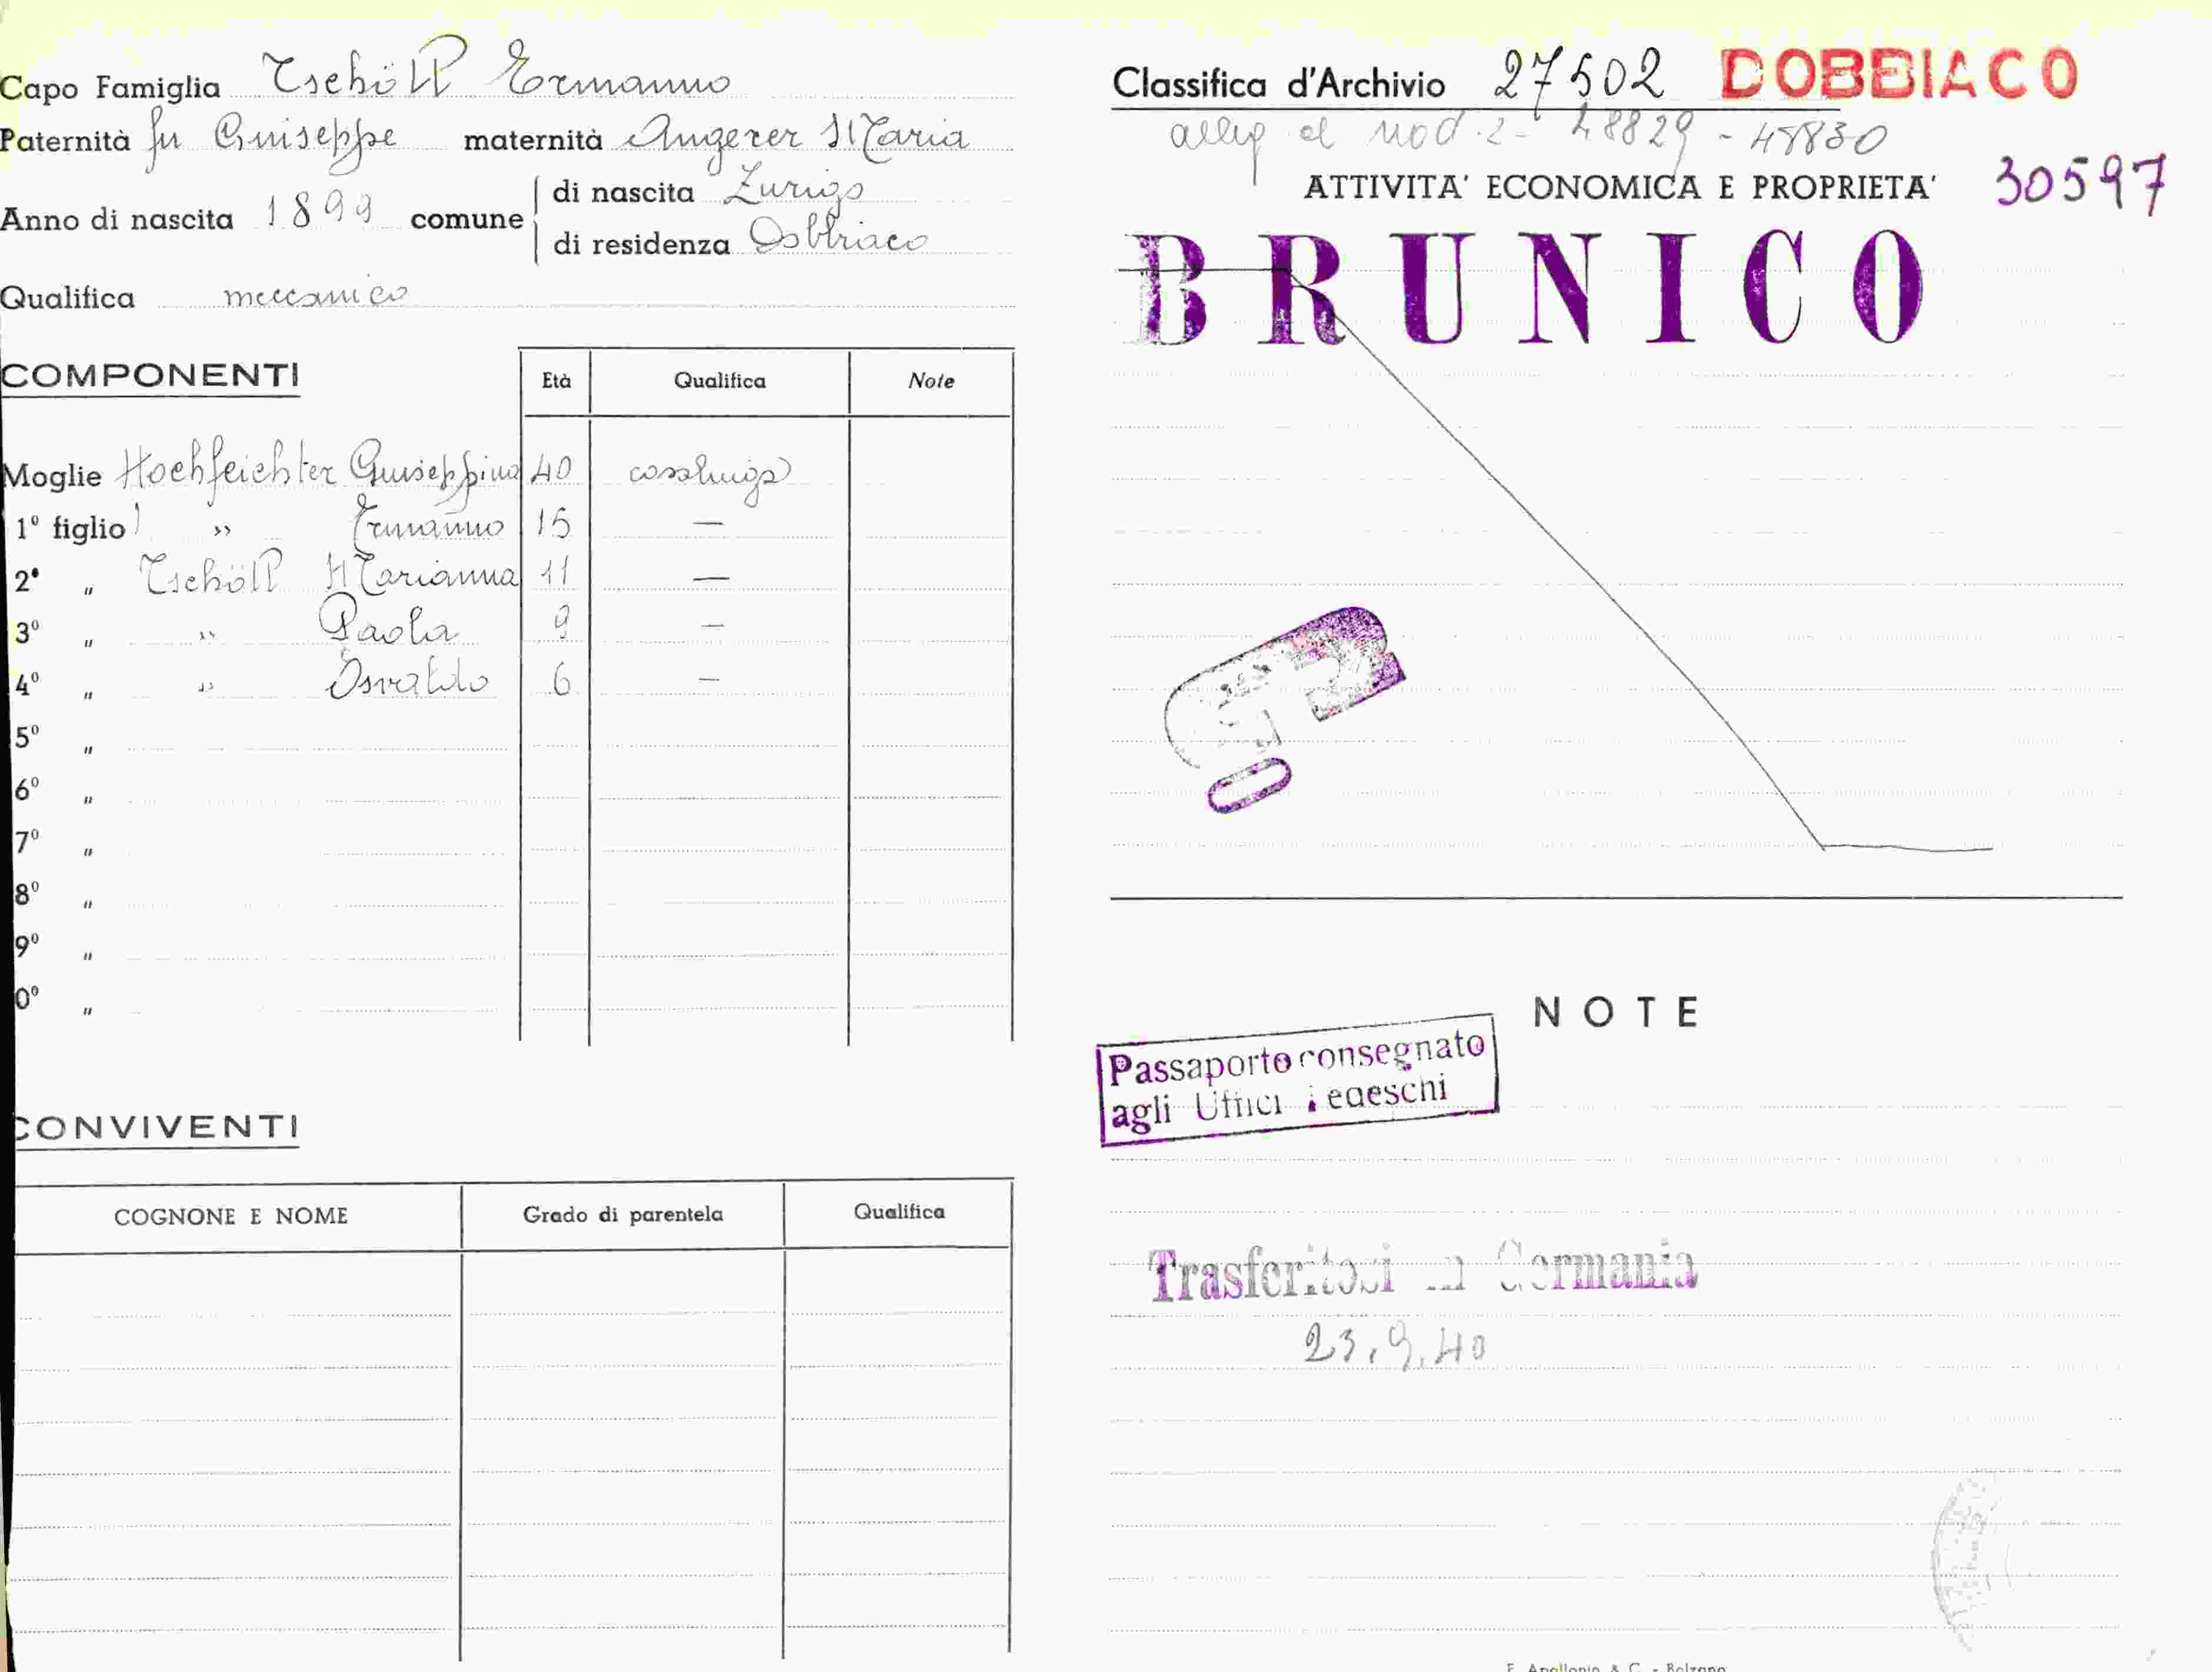 Capo Famiglia Tschöll Ermanno
Paternità fu Giuseppe maternità Angerer Maria
Anno di nascita 1899 comune di nascita Zurigo
di residenza Dobbiaco
Qualifica meccanico
COMPONENTI Età Qualifica Note
Moglie Hochfeichter Giuseppina 40 casalinga
1º figlio ) » Ermanno 15 —
2º „ Tschöll Marianna 11 —
3º „ » Paola 9 —
4º „ » Osvaldo 6 —
5º „
6º „
7º „
8º „
9º „
0º „
CONVIVENTI
COGNONE E NOME Grado di parentela Qualifica
Classifica d'Archivio 27502 DOBBIACO
alleg al mod. 2 - 48829 - 48830
ATTIVITA' ECONOMICA E PROPRIETA' 30597
BRUNICO
NOTE
Passaporto consegnato
agli Uffici Tedeschi
Trasferitosi in Germania
23.9.40
F. Apollonio & C. - Bolzano